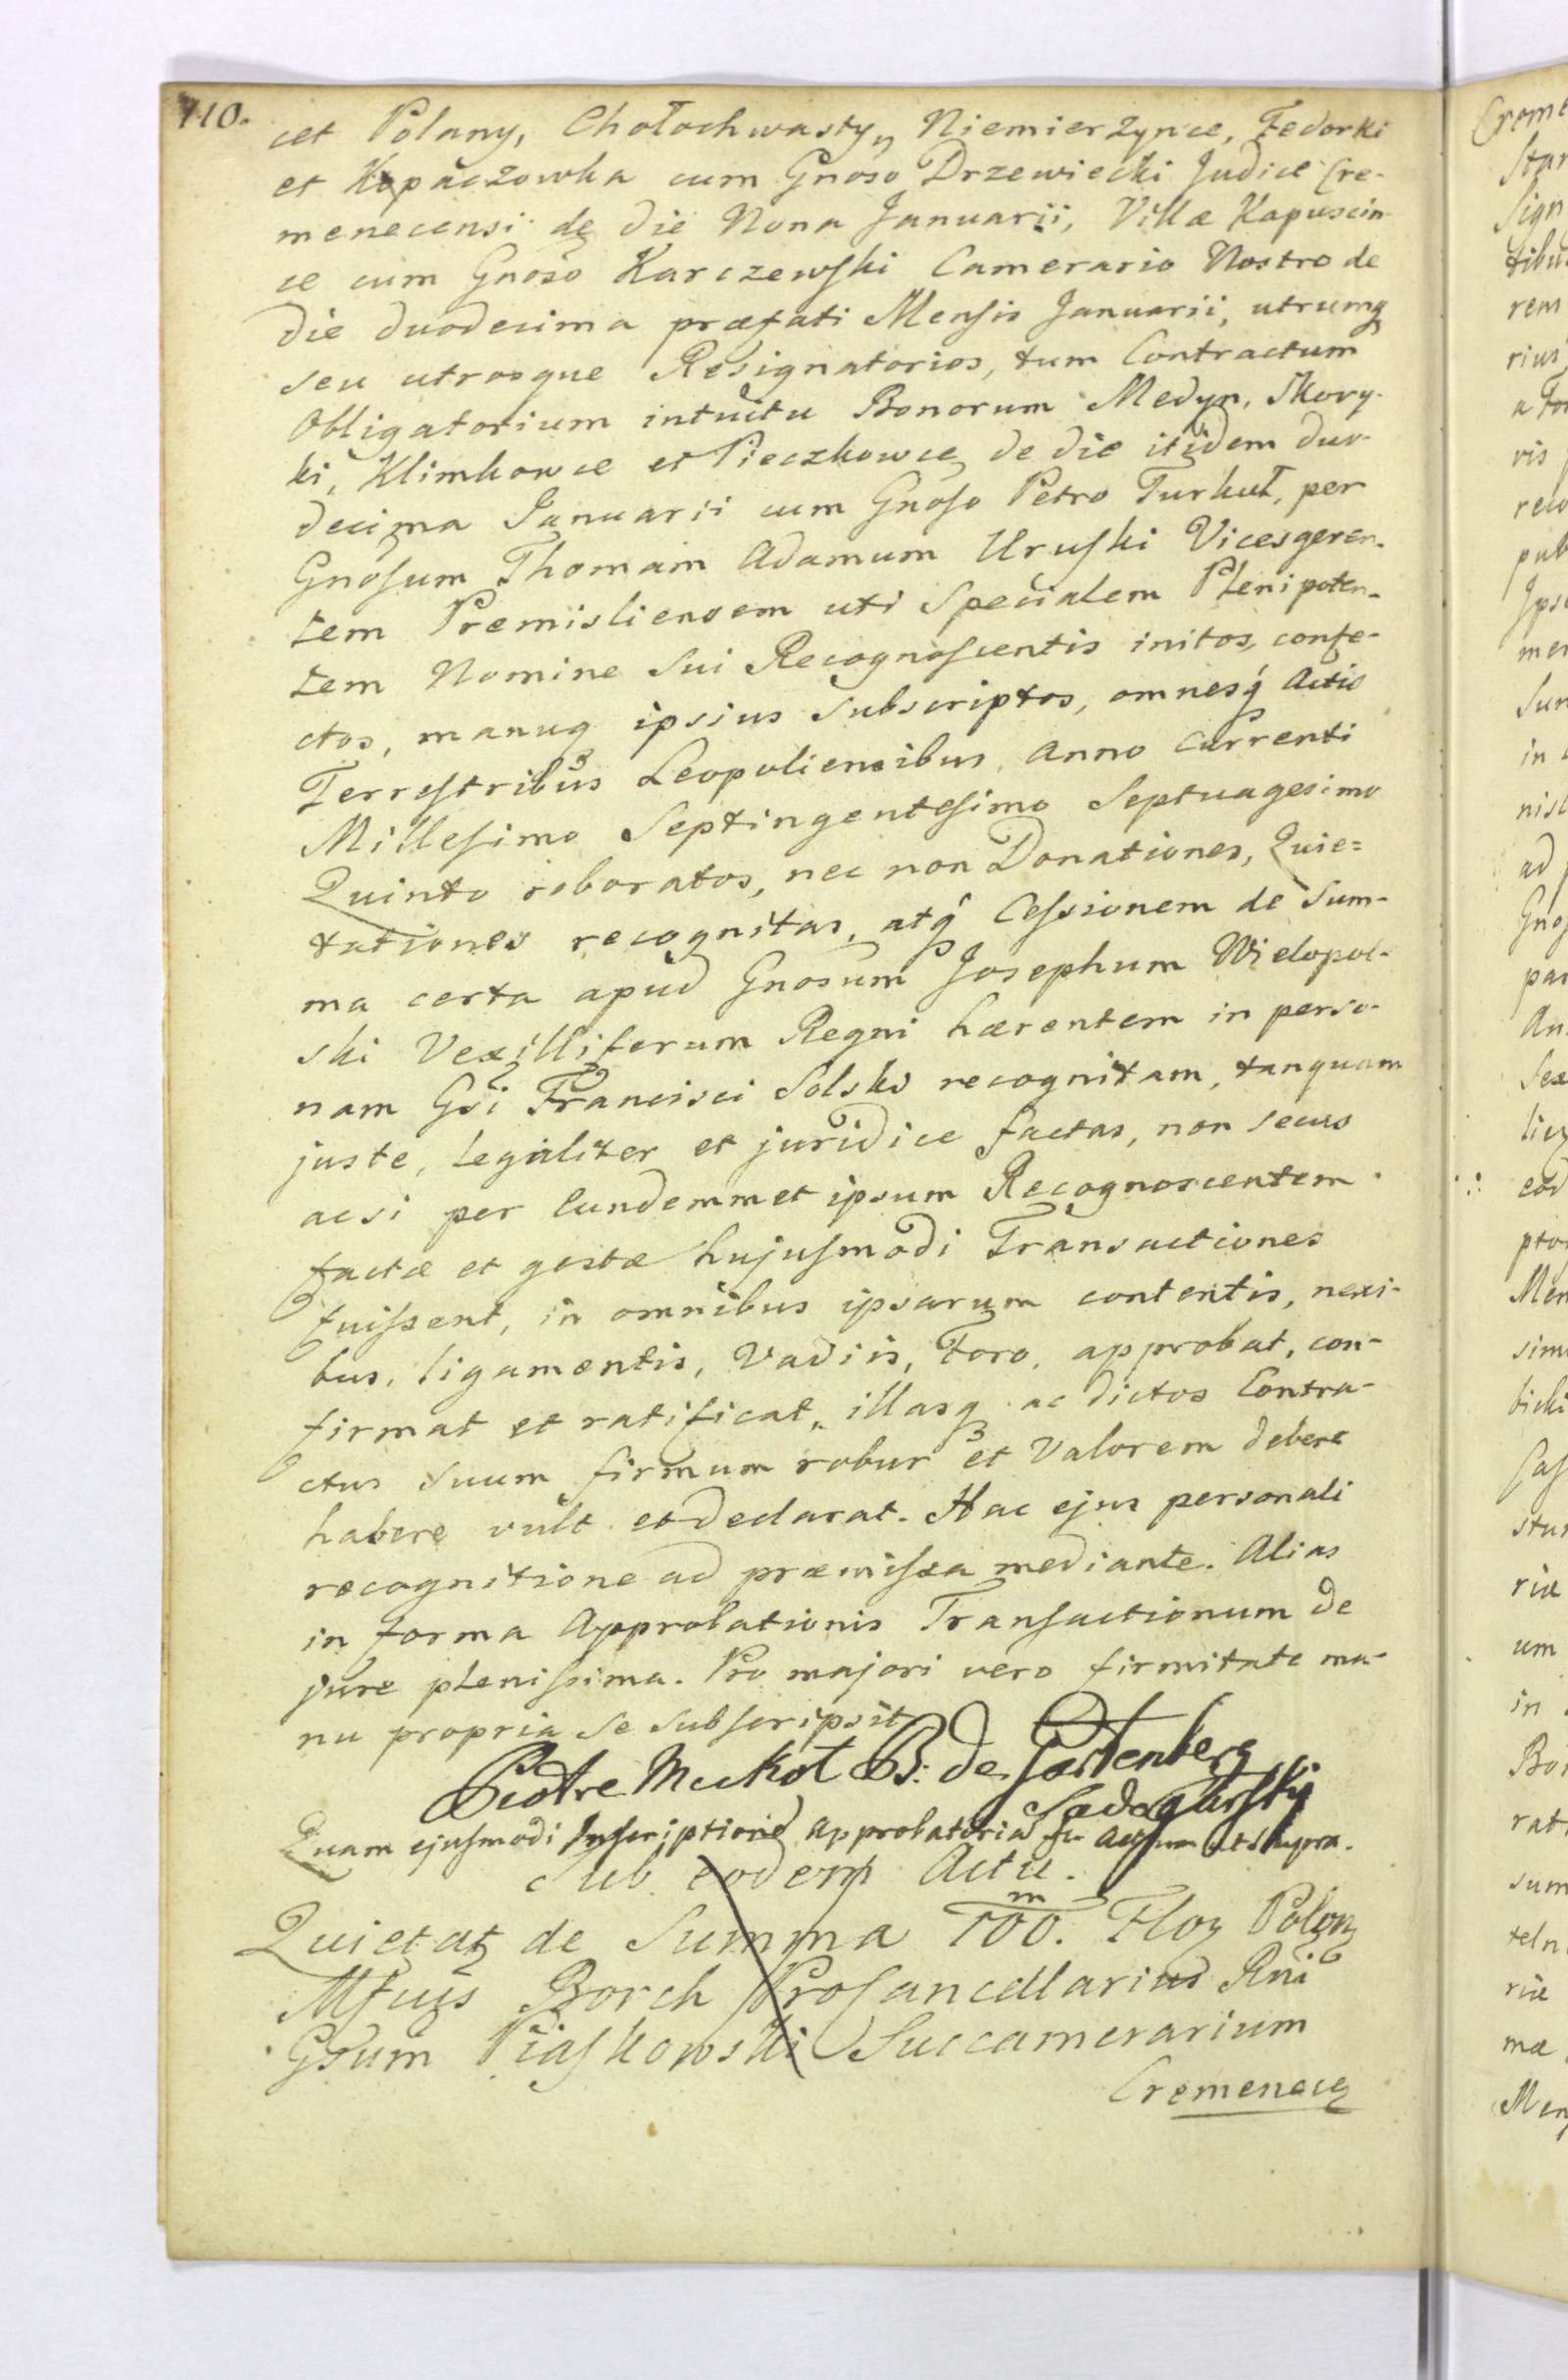 110.
cet Polany, Chołochwasty, Niemierzynce, Fedorki
et Kopaczowka cum Gnoso Drzewiecki Judice Cre-
menecensi de die Nona Januarii, Villæ Kapuscin-
ce cum Gnoso Karczewski Camerario Nostro de
die duodecima præfati Mensis Januarii, utrumq
seu utrosque Resignatorios, tum Contractum
Obligatorium intuitu Bonorum Medyn, Skory-
ki, Klimkowce et Pieczkowce de die itidem duo-
decima Januarii cum Gnoso Petro Turkuł, per
Gnosum Thomam Adamum Uruski Vicesgeren-
tem Premisliensem uti Specialem Plenipoten-
tem Nomine Sui Recognoscentis initos, confe-
ctos, manuq ipsius Subscriptos, omnesq Actis
Terrestribus Leopoliensibus, Anno Currenti
Millesimo Septingentesimo Septuagesimo
Quinto roboratos, nec non Donationes, Quie=
tationes recognitas, atq Cessionem de Sum-
ma certa apud Gnosum Josephum Wielopol-
ski Vexilliferum Regni hærentem in perso-
nam Gsi Francisci Solski recognitam, tanquam
juste, legaliter et juridice factas, non secus
acsi per Eundemmet ipsum Recognoscentem
factæ et gestæ hujusmodi Transactiones
fuissent, in omnibus ipsarum contentis, nexi-
bus, ligamentis, Vadiis, Foro, approbat, con-
firmat et ratificat, illasq ac dictos Contra-
ctus suum firmum robur et Valorem debere
habere vult et declarat. Hac ejus personali
recognitione ad præmissa mediante. Alias
in forma Approbationis Transactionum de
jure plenissima. Pro majori vero firmitate ma-
nu propria se subscripsit
Piotre B: de Gartenberg
Sadogurski
Quam ejusmodi Inscriptione approbatoria Actum ut supra.
Sub eodem Actu.
Quietat de Summa 100. m Flor Polon
Mfcus Borch Procancellarius Rni
Gsum Piaskowski Succamerarium
Cremenec
Crome
Star
Sign
tibus
rem
rius
a Fo
vis
reco
pub
Ipse
mer
Sun
in
nisl
ad
Gnos
par
An
Sex
lieg
eod
ptos
Men
sim
bicki
Cas
stur
riæ
um
in
Bo
rat
sum
teln
riæ
ma
Men